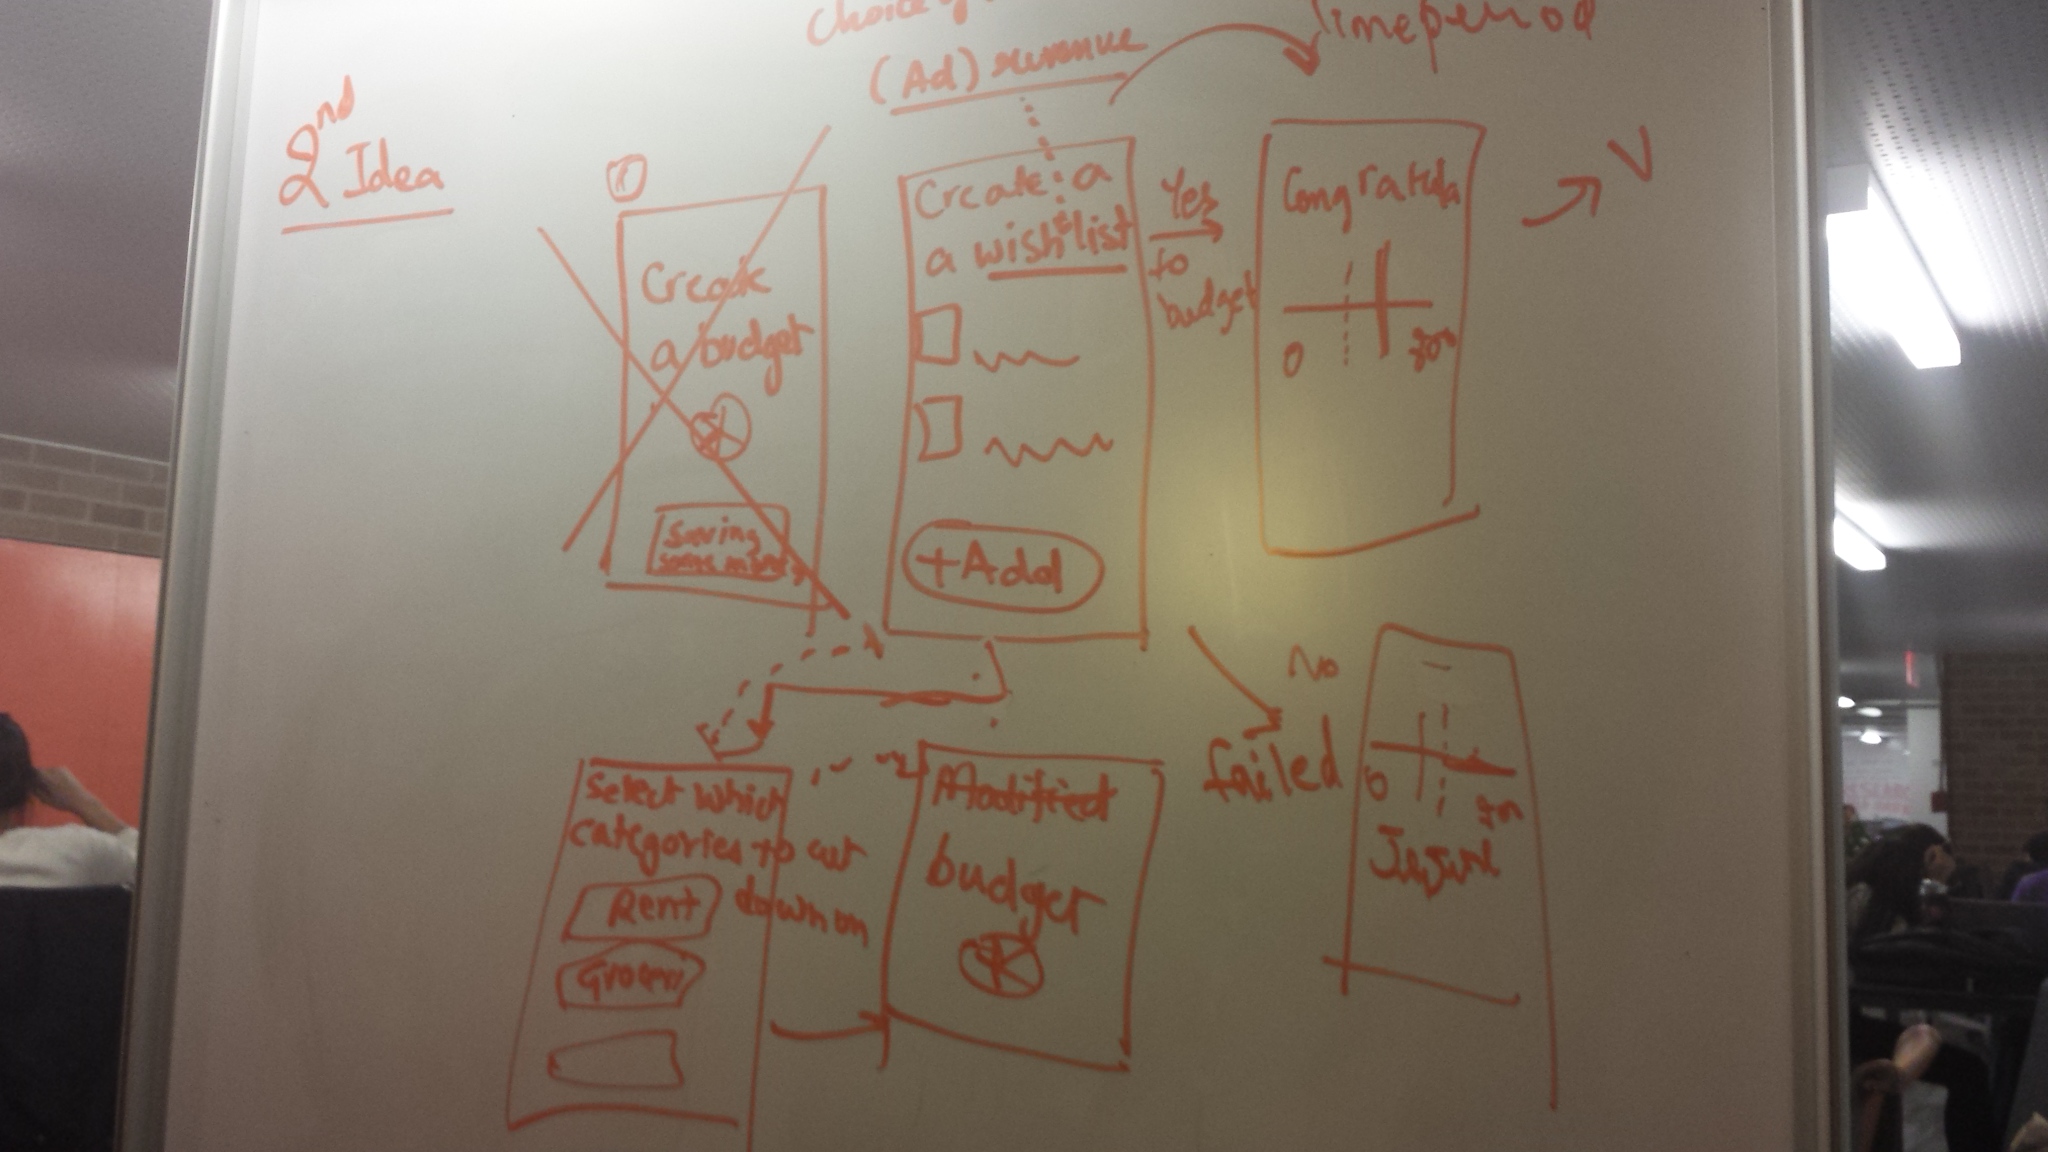 Choice
(Ad) revenue
Timeperiod
2nd Idea
1
Create
a budget
Saving
some money
Create a
a wishlist
+Add
Yes
to
budget
Congratula
0
30
No
failed
0
30
Select which
categories to cut
down on
Rent
Groceri
Modified
budget